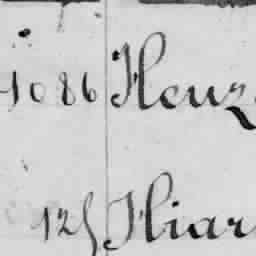 1086 Heuz
125 Hiar